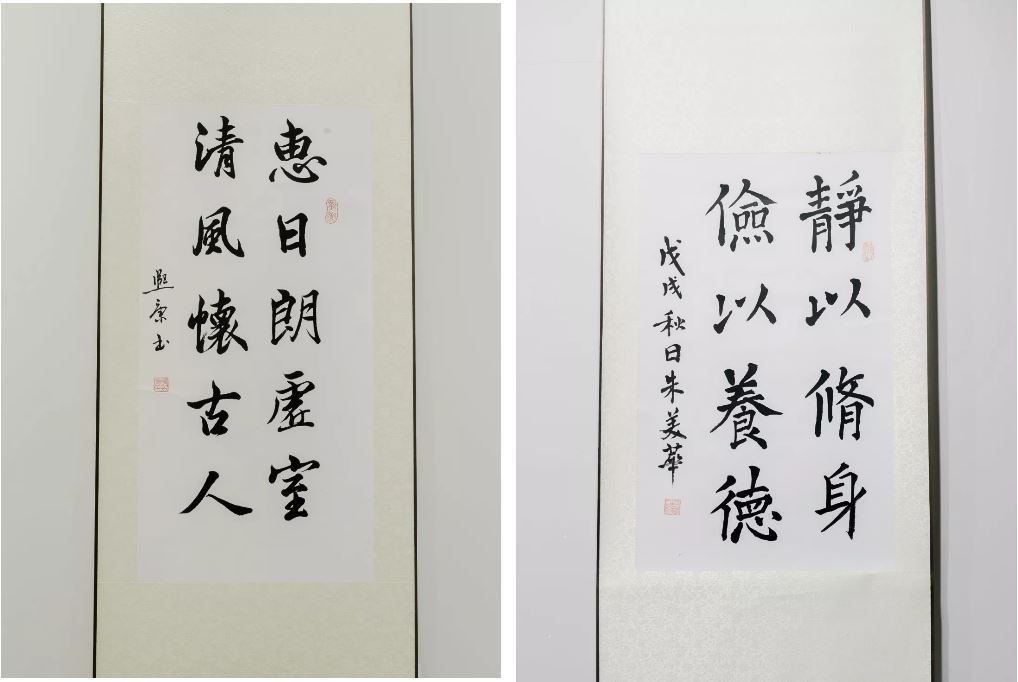 惠日朗虛室
清風懷古人
熙康书
靜以脩身
儉以養德
戊戌秋日朱美華